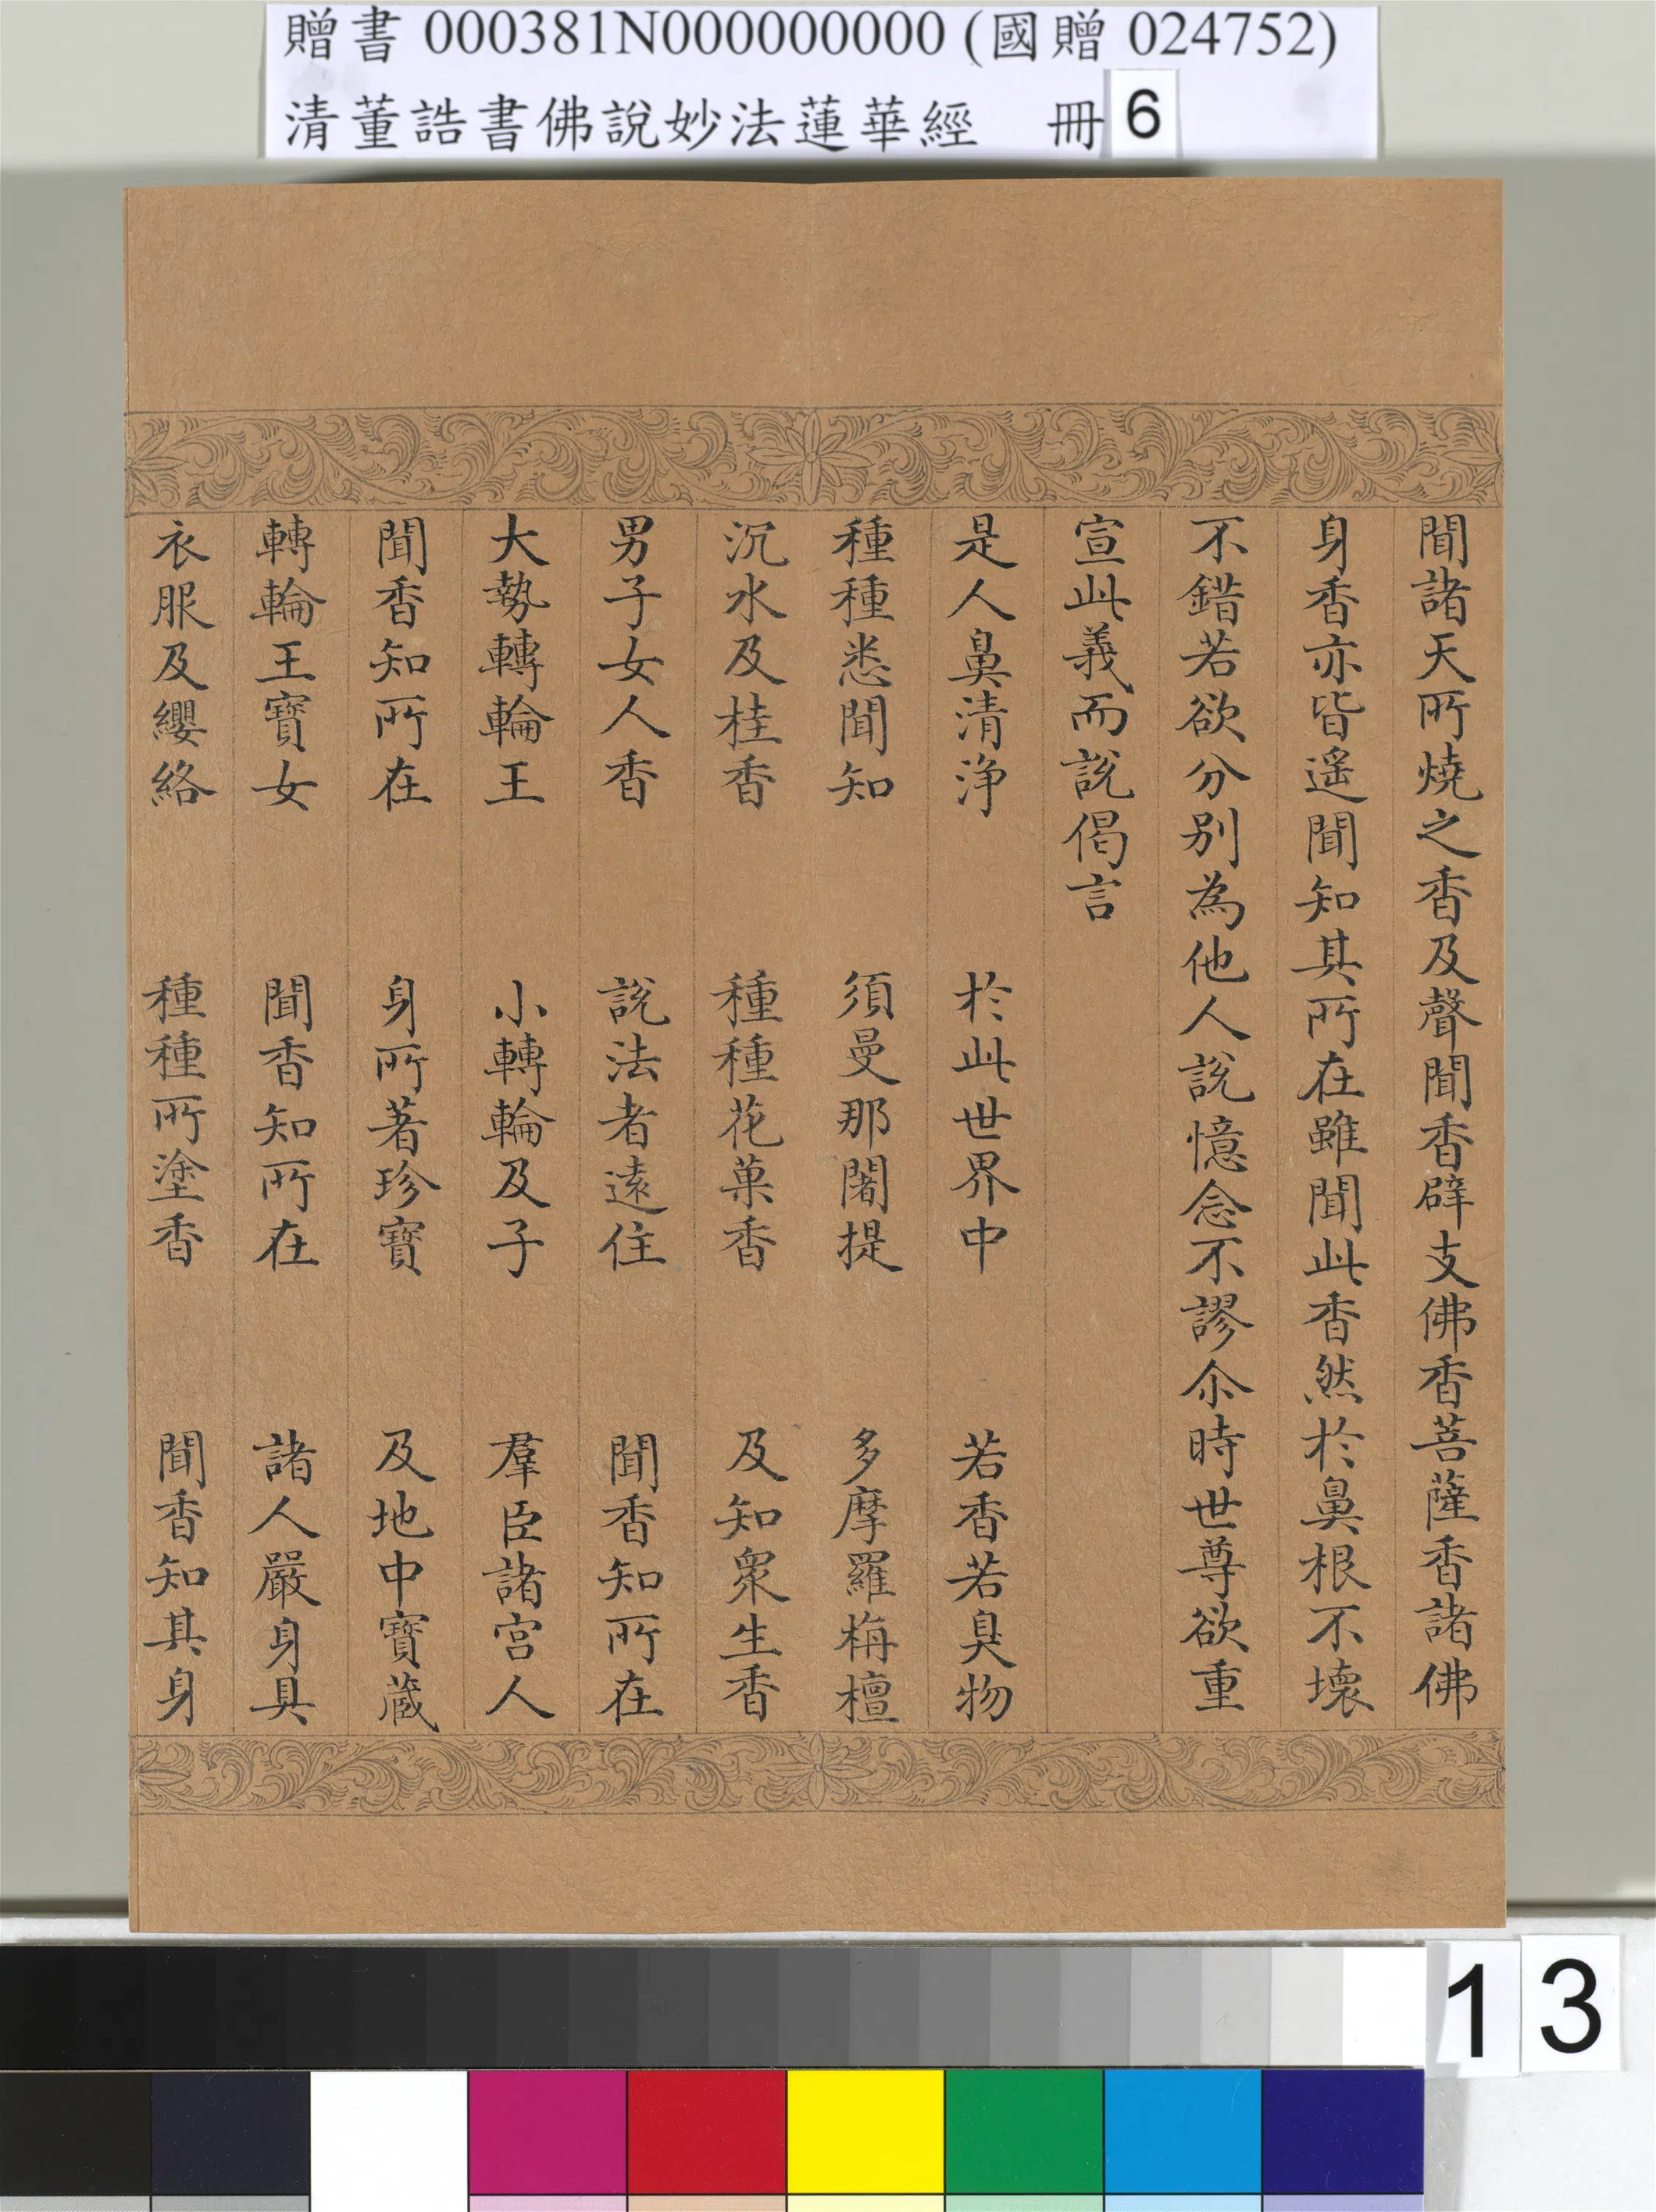 贈書 000381N000000000 (國贈 024752)
清董誥書佛說妙法蓮華經 冊 6
聞諸天所燒之香及聲聞香辟支佛香菩薩香諸佛
身香亦皆遥聞知其所在雖聞此香然於鼻根不壞
不錯若欲分別為他人說憶念不謬尒時世尊欲重
宣此義而說偈言
是人鼻清浄 於此世界中 若香若臭物
種種悉聞知 須曼那闍提 多摩羅栴檀
沉水及桂香 種種花菓香 及知眾生香
男子女人香 說法者遠住 聞香知所在
大勢轉輪王 小轉輪及子 羣臣諸宮人
聞香知所在 身所著珍寶 及地中寶蔵
轉輪王寶女 聞香知所在 諸人嚴身具
衣服及纓絡 種種所塗香 聞香知其身
13